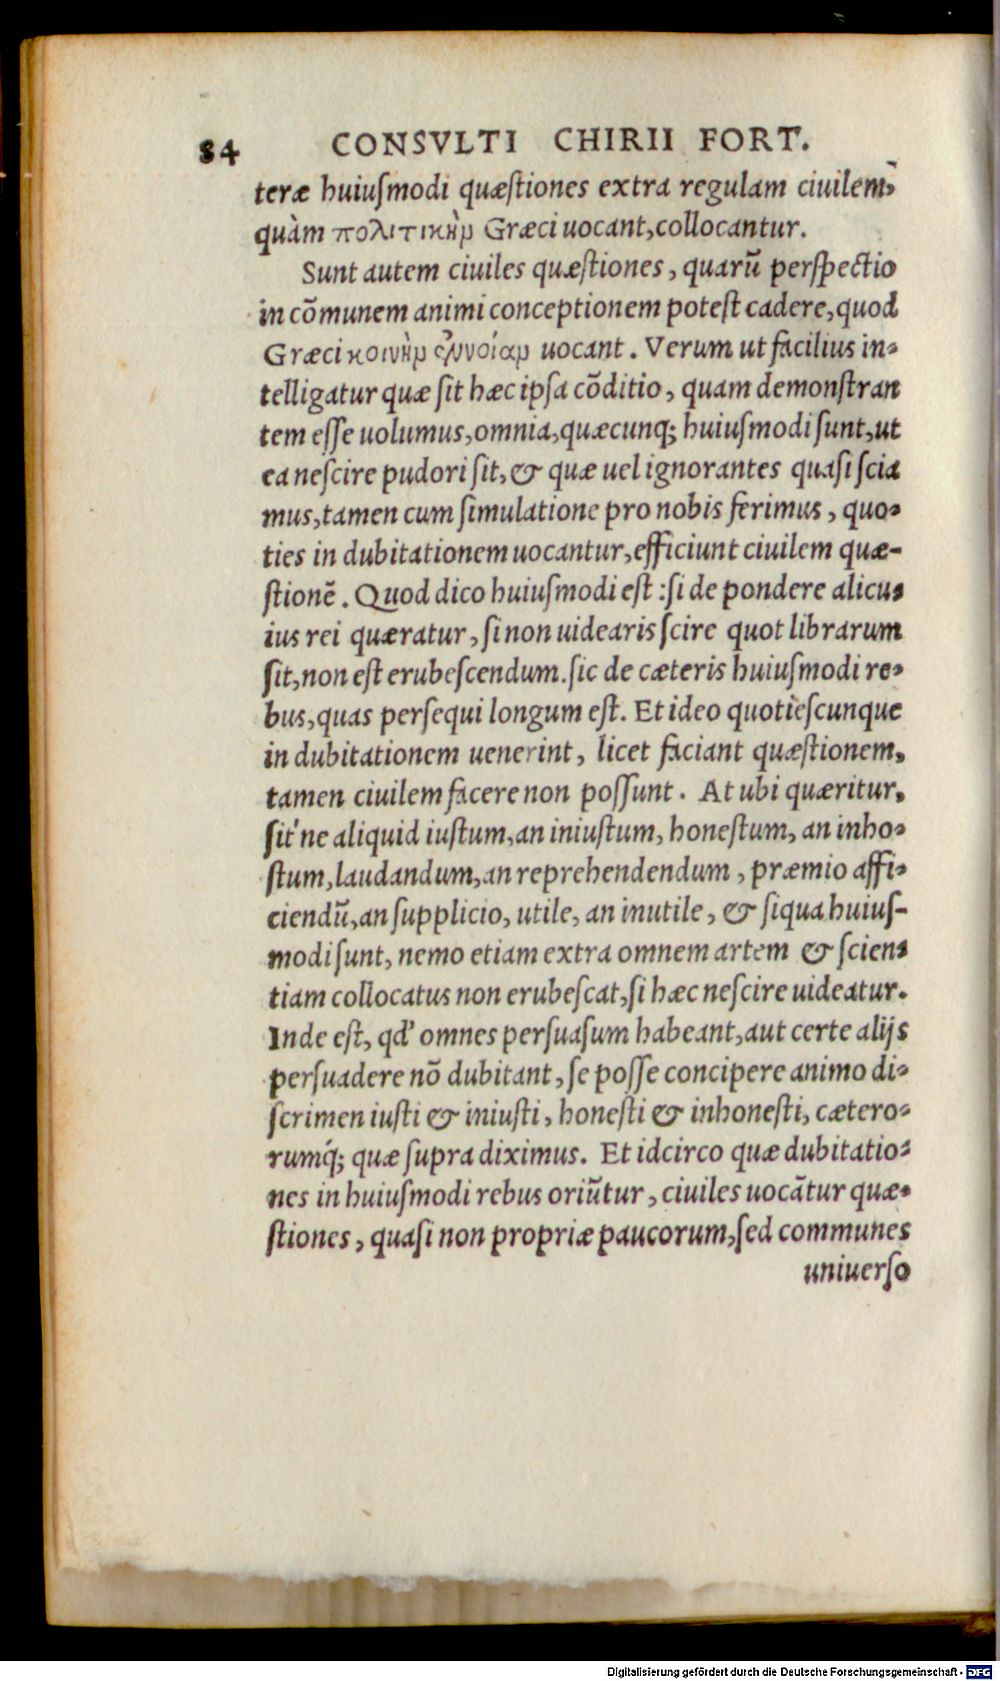 84 CONSVLTI CHIRII FORT.
teræ huiuſmodi quæſtiones extra regulam ciuilem,
quàm πολιτικὴν Græci uocant, collocantur.
Sunt autem ciuiles quæſtiones, quarũ perſpectio
in cõmunem animi conceptionem poteſt cadere, quod
Græci κοινὴν ἔννοίαν uocant. Verum ut facilius in-
telligatur quæ ſit hæc ipſa cõditio, quam demonſtran
tem eſſe uolumus, omnia, quæcunq; huiuſmodi ſunt, ut
ea neſcire pudori ſit, & quæ uel ignorantes quaſi ſcia
mus, tamen cum ſimulatione pro nobis ferimus, quo-
ties in dubitationem uocantur, efficiunt ciuilem quæ-
ſtionẽ. Quod dico huiuſmodi eſt: ſi de pondere alicu-
ius rei quæratur, ſi non uidearis ſcire quot librarum
ſit, non eſt erubeſcendum. ſic de cæteris huiuſmodi re-
bus, quas perſequi longum eſt. Et ideo quotieſcunque
in dubitationem uenerint, licet faciant quæſtionem,
tamen ciuilem facere non poſſunt. At ubi quæritur,
ſit'ne aliquid iuſtum, an iniuſtum, honeſtum, an inho-
ſtum, laudandum, an reprehendendum, præmio affi-
ciendũ, an ſupplicio, utile, an inutile, & ſiqua huiuſ-
modi ſunt, nemo etiam extra omnem artem & ſcien-
tiam collocatus non erubeſcat, ſi hæc neſcire uideatur.
Inde eſt, qd' omnes perſuaſum habeant, aut certe alijs
perſuadere nõ dubitant, ſe poſſe concipere animo di-
ſcrimen iuſti & iniuſti, honeſti & inhoneſti, cætero-
rumq́; quæ ſupra diximus. Et idcirco quæ dubitatio-
nes in huiuſmodi rebus oriũtur, ciuiles uocãtur quæ-
ſtiones, quaſi non propriæ paucorum, ſed communes
uniuerſo
Digitalisierung gefördert durch die Deutsche Forschungsgemeinschaft - DFG